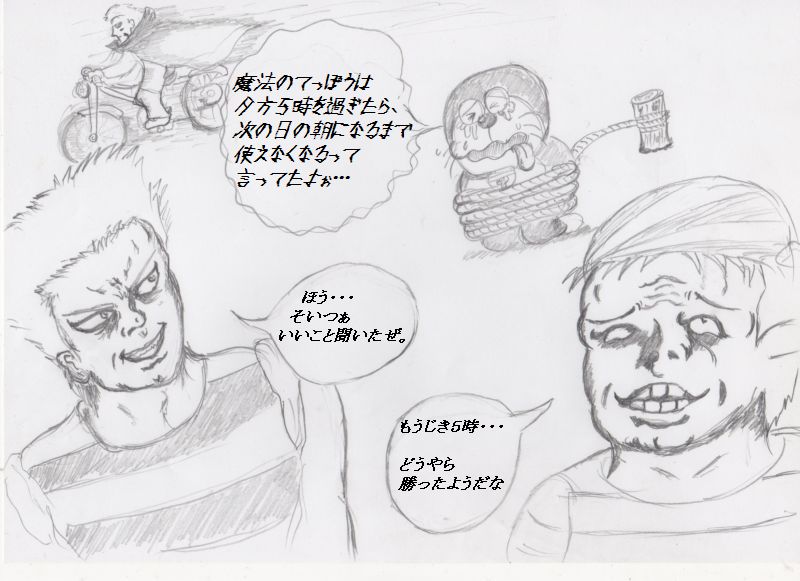 魔法のてっぽうは
夕方5時を過ぎたら、
次の日の朝になるまで
使えなくなるって
言ってたよぉ…
ほう・・・
そいつぁ
いいこと聞いたぜ。
もうじき5時・・・
どうやら
勝ったようだな